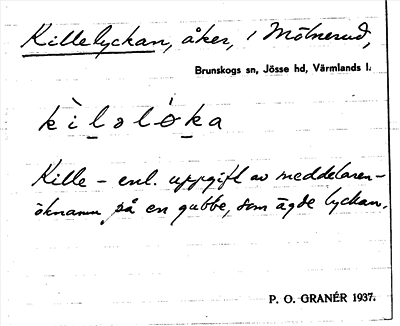 Killelyckan, åker, i Mölnerud,
Brunskogs sn, Jösse hd, Värmlands l.
kìləlo̊ka
Kille – enl. uppgift av meddelaren –
öknamn på en gubbe, som ägde lyckan.
P. O. GRANÉR 1937.